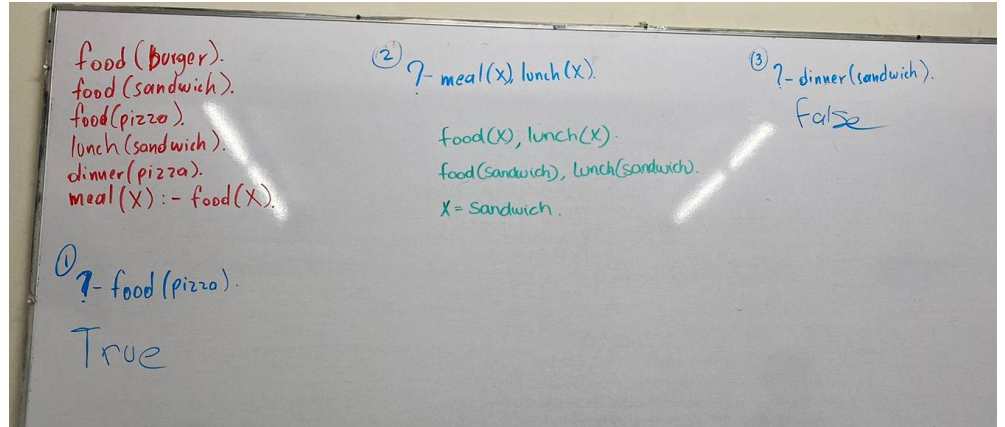 food (Burger).
food (sandwich).
food (pizza).
lunch (sandwich).
dinner (pizza).
meal (X) :- food (X).
①
?- food (pizza).
True
②
?- meal (X), lunch (X).
food(X), lunch(X).
food(sandwich), lunch(sandwich).
X = Sandwich.
③
?- dinner (sandwich).
False